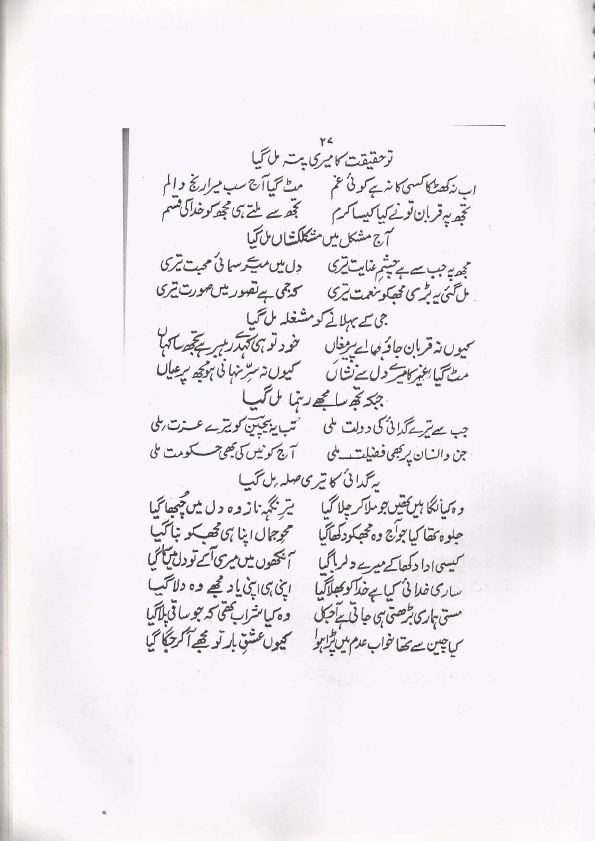 ۲۷
تو حقیقت کا میری پتہ مل گیا
اب نہ کھٹکا کسی کا نہ ہے کوئی غم مٹ گیا آج سب میرا رنج و الم
تجھ پہ قربان تو نے کیا کیسا کرم تجھ سے ملتے ہی مجھ کو خدا کی قسم
آج مشکل میں مشکلکشاں مل گیا
مجھ پہ جب سے ہے چشمِ عنایت تیری دل میں میرے سمائی محبت تیری
مل گئی یہ بڑی مجھکو نعمت تیری کو جمی ہے تصور میں صورت تیری
جی کے بہلانے کو مشغلہ مل گیا
کیوں نہ قربان جاؤں اے پیرِ مغاں خود تو ہی کہدے رہبر ہے تجھ سا کہاں
مٹ گیا غیر کا میرے دل سے نشاں کیوں نہ سرِّ نہانی ہو مجھ پر عیاں
جبکہ تجھ سا مجھے رہنما مل گیا
جب سے ترے گدائی کی دولت ملی تب یہ بیچین کو ترے عزت ملی
جن و انسان پر بھی فضیلت ملی آج کونین کی بھی حکومت ملی
یہ گدائی کا تیری صلہ مل گیا
وہ کیا نگاہیں تھیں جو ملا کر چلا گیا تیرِ نگہہ ناز وہ دل میں چبھا گیا
جلوہ تھا کیا جو آج وہ مجھکو دکھا گیا محوِ جمال اپنا ہی مجھکو بنا گیا
کیسی ادا دکھا کے میرے دلربا گیا آنکھوں میں میری آ کے تو دل میں سما گیا
ساری خدائی کیا ہے خدا کو بھلا گیا اپنی ہی اپنی یاد مجھے وہ دلا گیا
مستی ہماری بڑھتی ہی جاتی ہے آجکل وہ کیا شراب تھی کہ جو ساقی پلا گیا
کیا چین سے تھا خوابِ عدم میں پڑا ہوا کیوں عشقِ یار تو مجھے آ کر جگا گیا